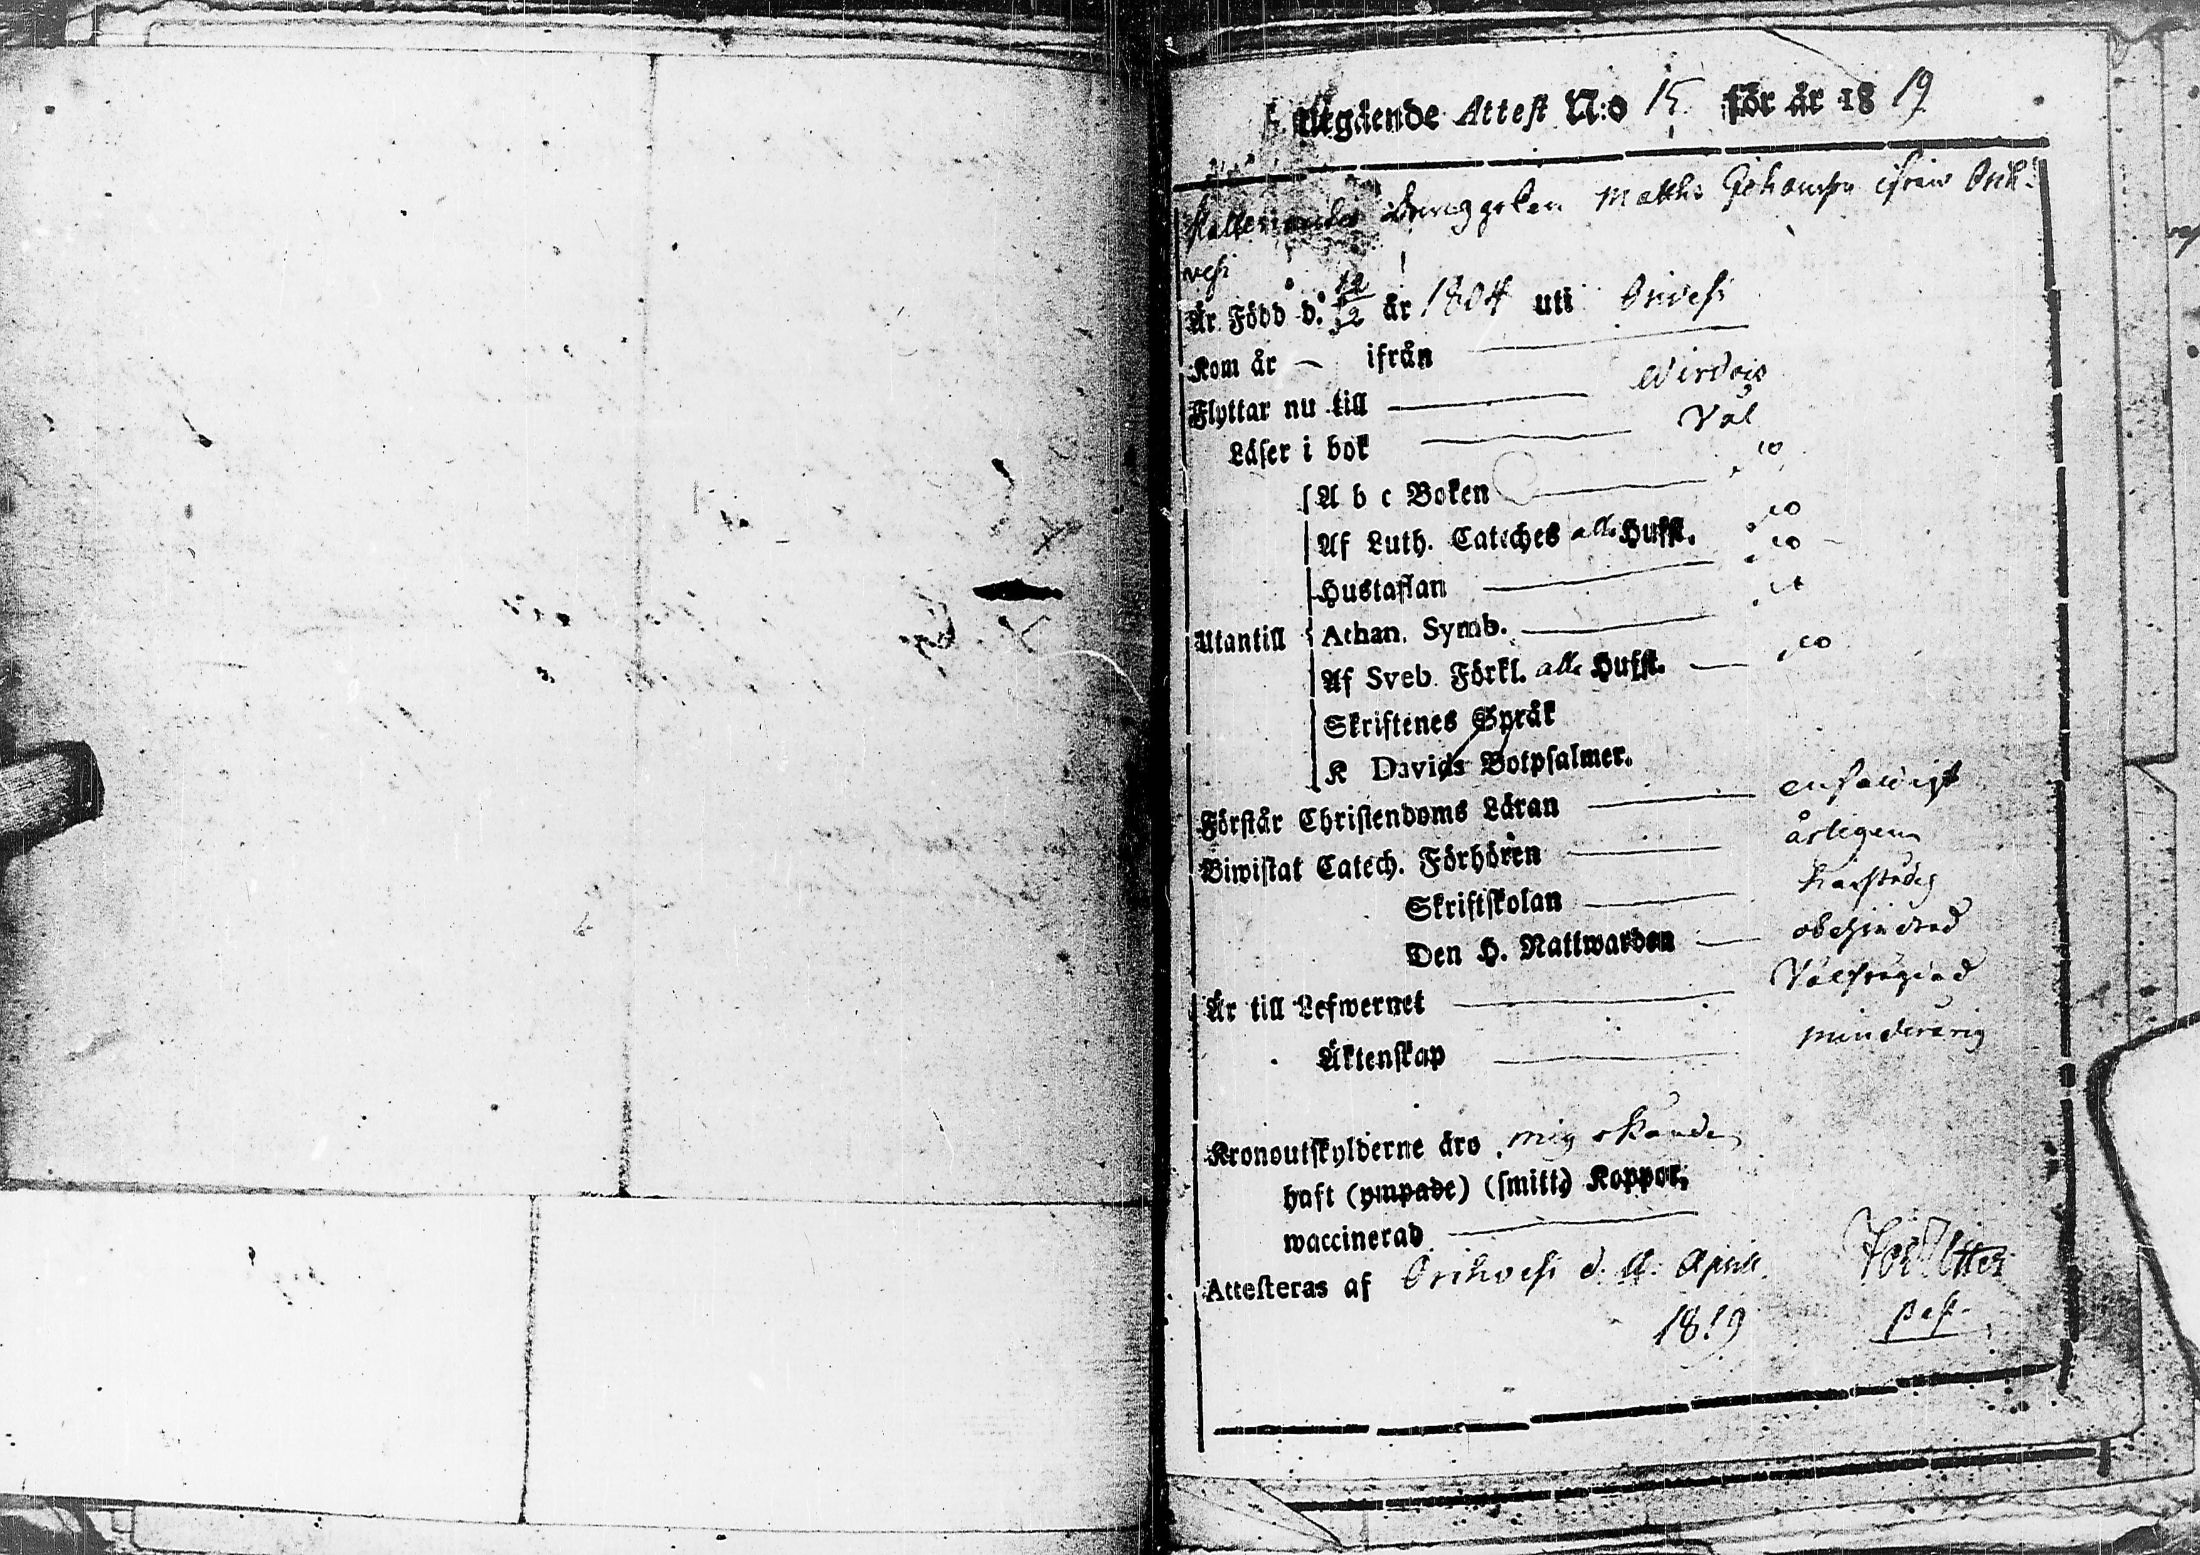 Utgående Attest N:o 15 för år 1819
Matths Johansson ifrån Orih-
vesi
Är Född d. 12/12 år 1804 uti Orivesi
Kom år — ifrån
Flyttar nu till Wirdois
Läser i bok Väl
A b c Boken
Af Luth. Cateches alla Hufst.
Hustaflan
Utantill Athan. Symb.
Af Sveb. Förkl. alla Hufst.
Skriftenes Språk
K Davids Botpsalmer.
Förstår Christendoms Läran enfaldigt
Biwistat Catech. Förhören årligen
Skriftskolan
Den H. Nattwarden obehindrad
Är till Lefwernet Välfrägdad
Äktenskap minderårig
Kronoutskylderne äro
haft (ympade) (smitt) Koppor,
waccinerad
Attesteras af Orihvesi d. April
1819 past.